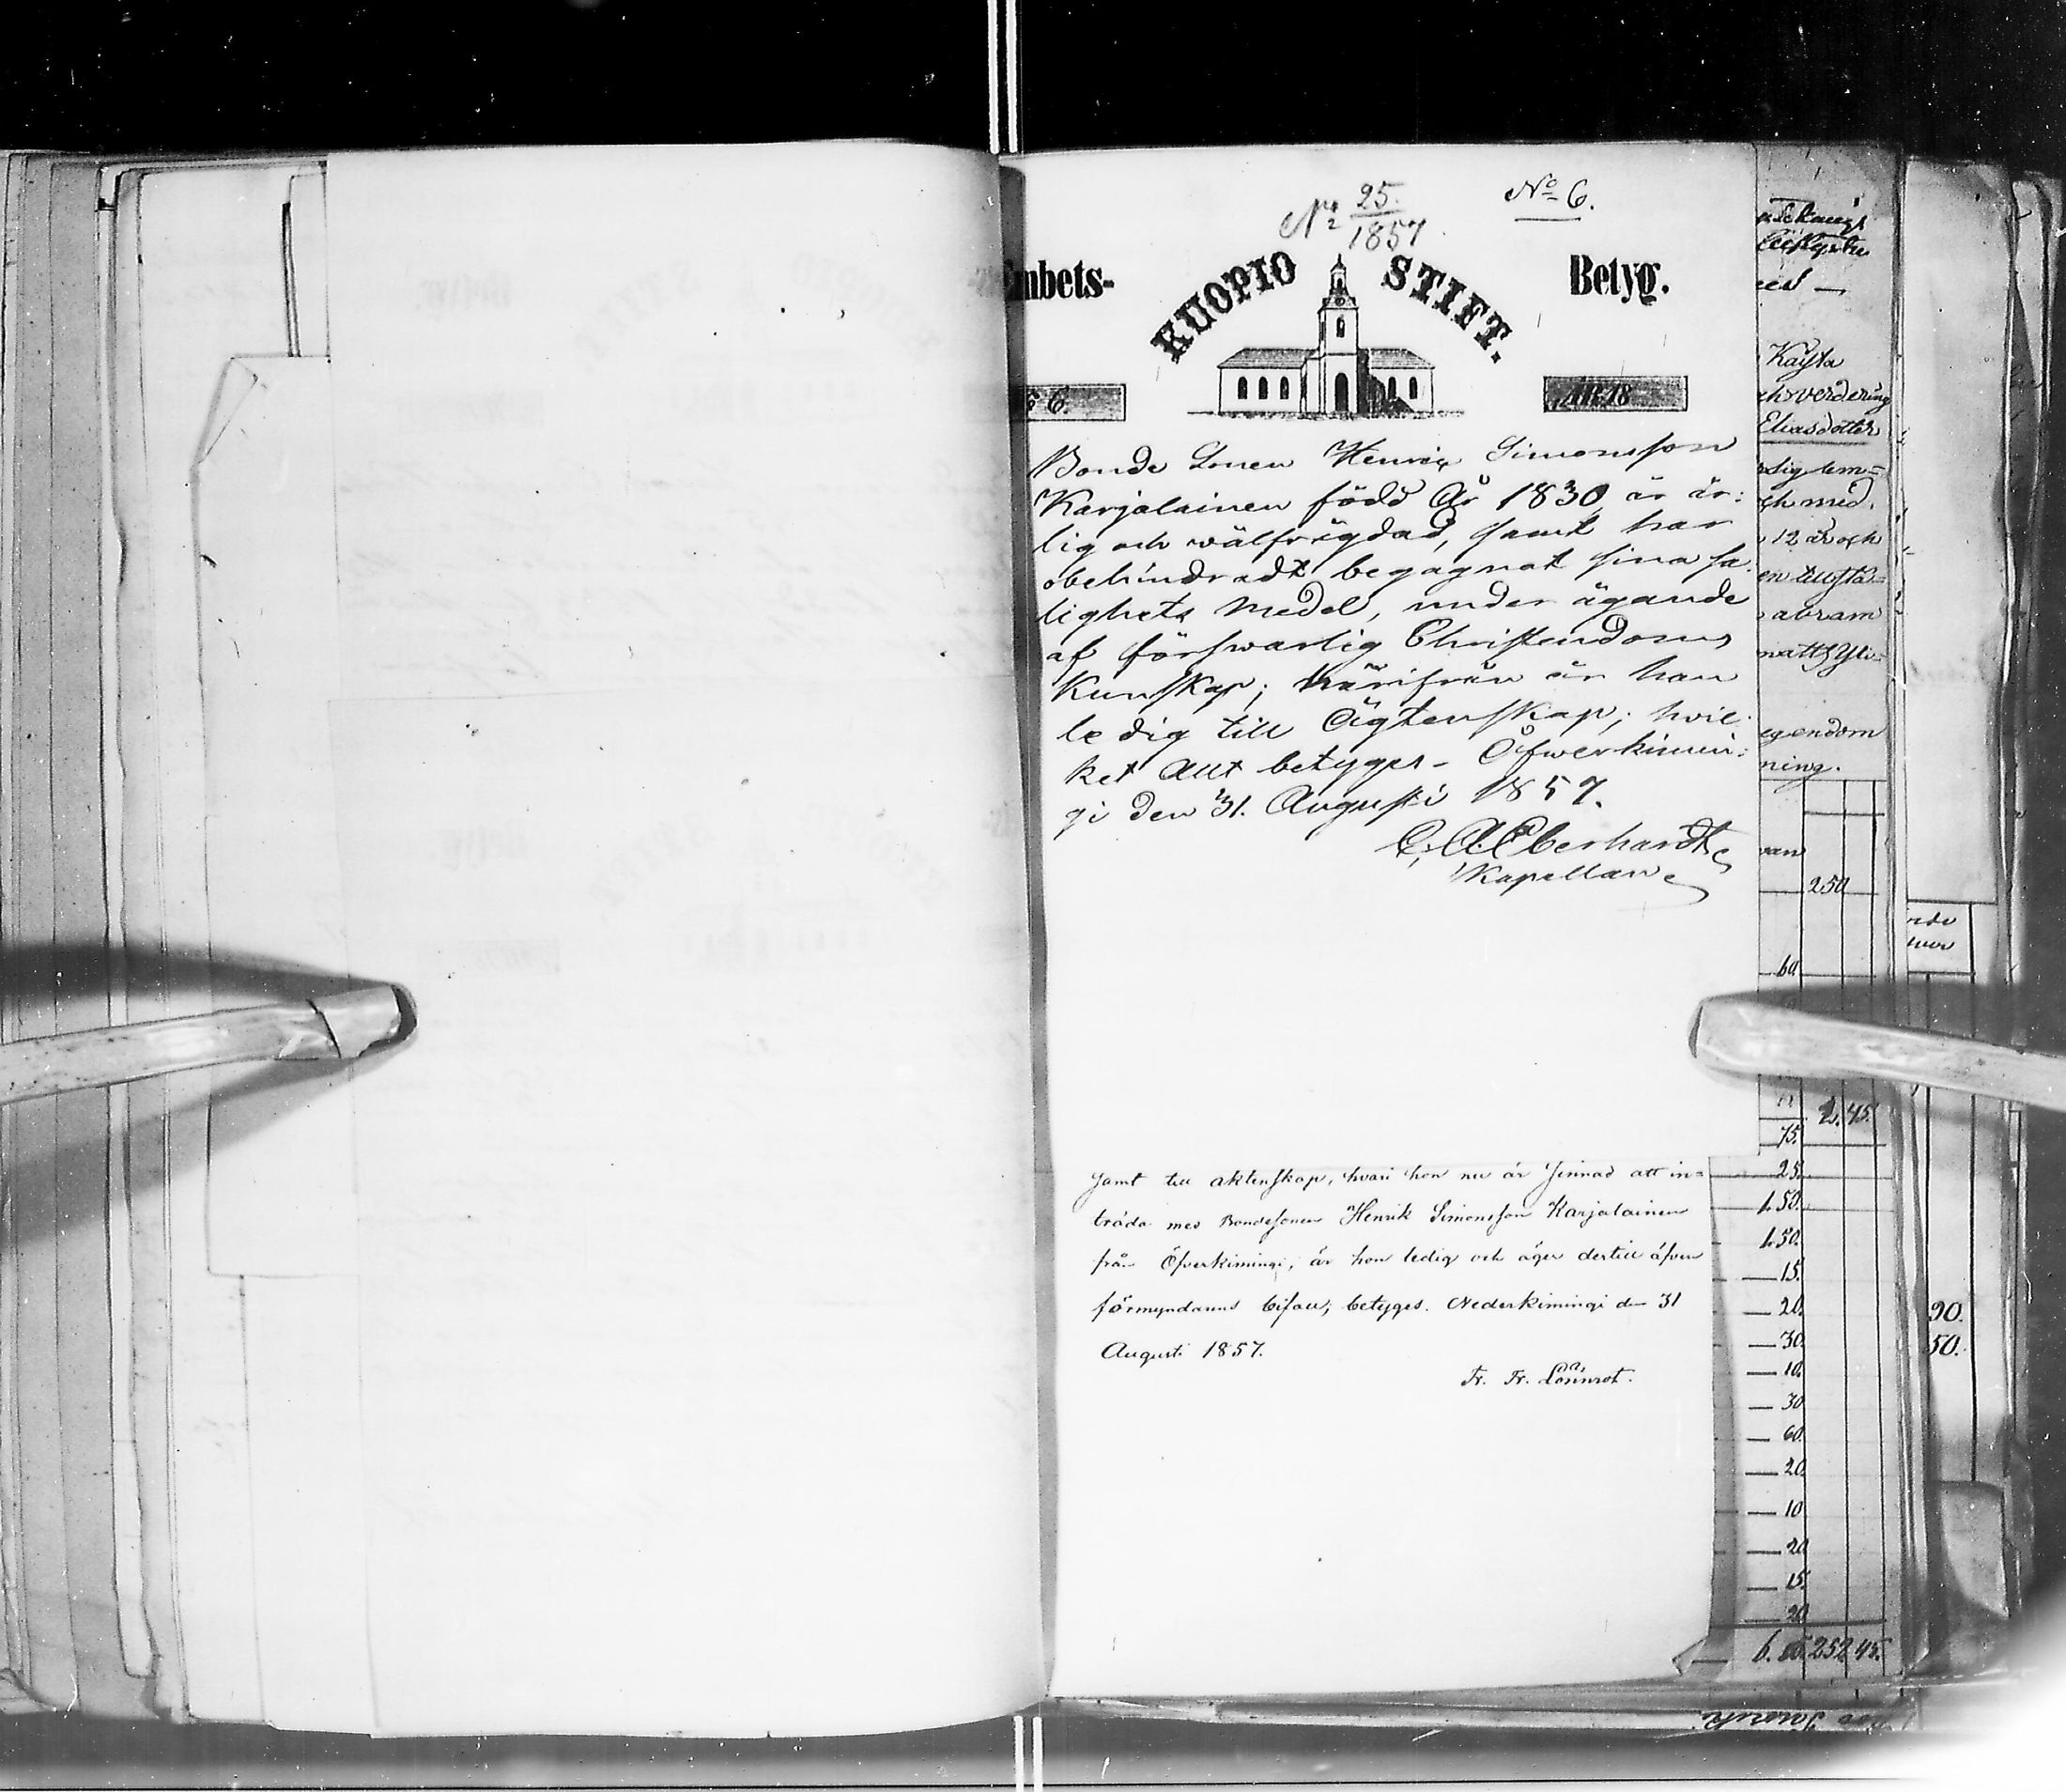 No 25./1857
No 6.
Embets-
KUOPIO STIFT.
Betyg.
No 6.
ÅR 18
Bonde Sonen Henric Simonsson
Karjalainen född År 1830, är är:
lig och wälfrägdad, samt har
obehindradt begagnat sina sa:
lighets medel, under ägande
af förswarlig Christendoms
Kunskap; härifrån är han
ledig till Ägtenskap; hvil:
ket Allt betyges - Öfwerkimin:
gi den 31. Augusti 1857.
C. A. Eberhardt
Kapellan
samt till äktenskap, hvari hon nu är sinnad att in=
träda med Bondesonen Henrik Simonsson Karjalainen
från Öfverkimingi, är hon ledig och äger dertill äfven
förmyndarens bifall; betyges. Nederkimingi den 31
Augusti 1857.
Fr. Fr. Lönnrot.
Kaysta
verdering
Eliasdotter
sig lem=
med.
12 år och
abram
egendom
ning.
250
60
2.45.
75.
25.
1.50.
1.50.
15.
20.
30.
10.
30
60.
20
10
20
15.
20
252 45.
90.
50.